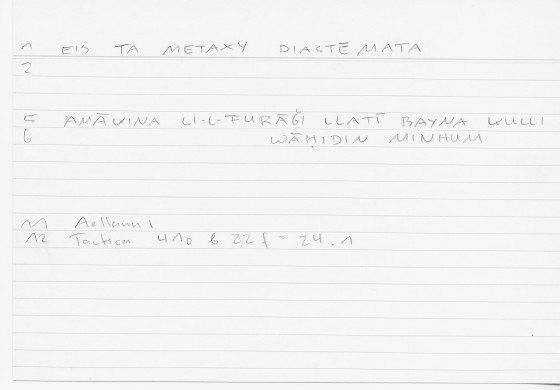 1 EIS TA METAXY DIASTĒMATA
2
5 AMĀKINA LI-L-FURĀǦI LLATĪ BAYNA KULLI
6 WĀḤIDIN MINHUM
11 Aelianus
12 Tactica 410 b 22 f = 24.1